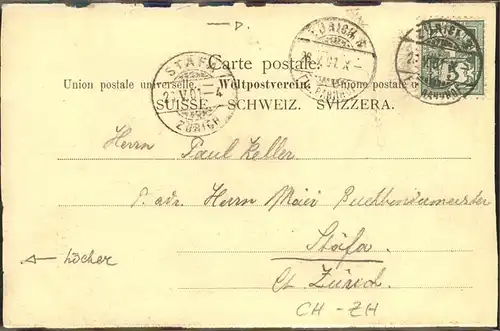 Carte postale.
Union postale universelle. Weltpostverein. Unione postale
SUISSE. SCHWEIZ. SVIZZERA.
ZÜRICH
5
STÄFA
ZÜRICH
ZÜRICH
Herrn Paul Keller
p. adr. Herrn Buchbindermeister
Stäfa
Ct. Zürich
← Löcher
CH - ZH